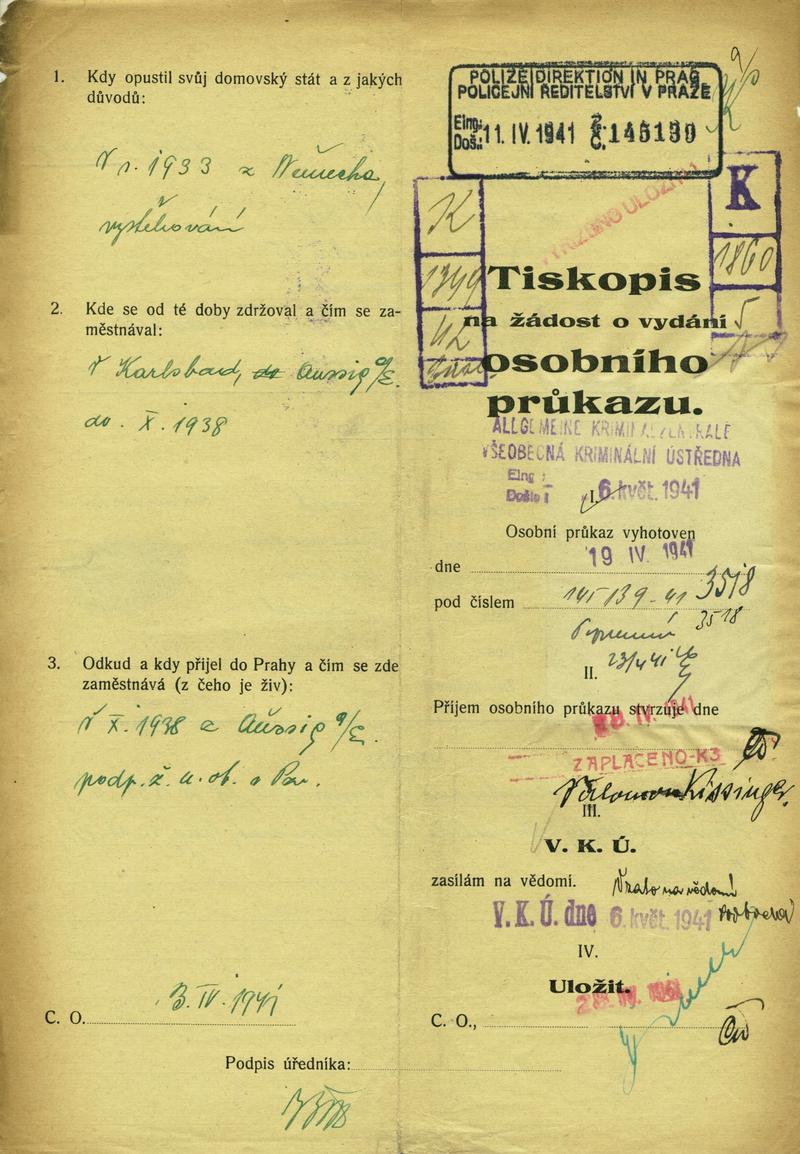 1. Kdy opustil svůj domovský stát a z jakých
důvodů:
V r. 1933 z Německa,
vystěhování
2. Kde se od té doby zdržoval a čím se za-
městnával:
V Karlsbad, do Aussig a/E.
do. X. 1938
3. Odkud a kdy přijel do Prahy a čím se zde
zaměstnává (z čeho je živ):
V X. 1938 z Aussig a/E.
podp. ž. u. ob.
C. O. 3. IV. 1941
Podpis úředníka:
POLIZEIDIREKTION IN PRAG
POLICEJNÍ ŘEDITELSTVÍ V PRAZE
Elng:
Doš.: 11. IV. 1941 Z. Č. 145139
K
1349
42
K
1860
5
Tiskopis
na žádost o vydání
osobního
průkazu.
ALLGEMEINE KRIMINALZENTRALE
VŠEOBECNÁ KRIMINÁLNÍ ÚSTŘEDNA
Elng:
Došlo: 6. květ. 1941
I.
Osobní průkaz vyhotoven
dne 19 IV. 1941
pod číslem 145139-41 3518
3518
II. 23/4 41
Příjem osobního průkazu stvrzuje dne
ZAPLACENO-K3
Salomon Kissinger
III.
V. K. Ú.
zasílám na vědomí. Vzato na vědomí
V.K.Ú. dne 6. květ. 1941
IV.
Uložit.
C. O.,